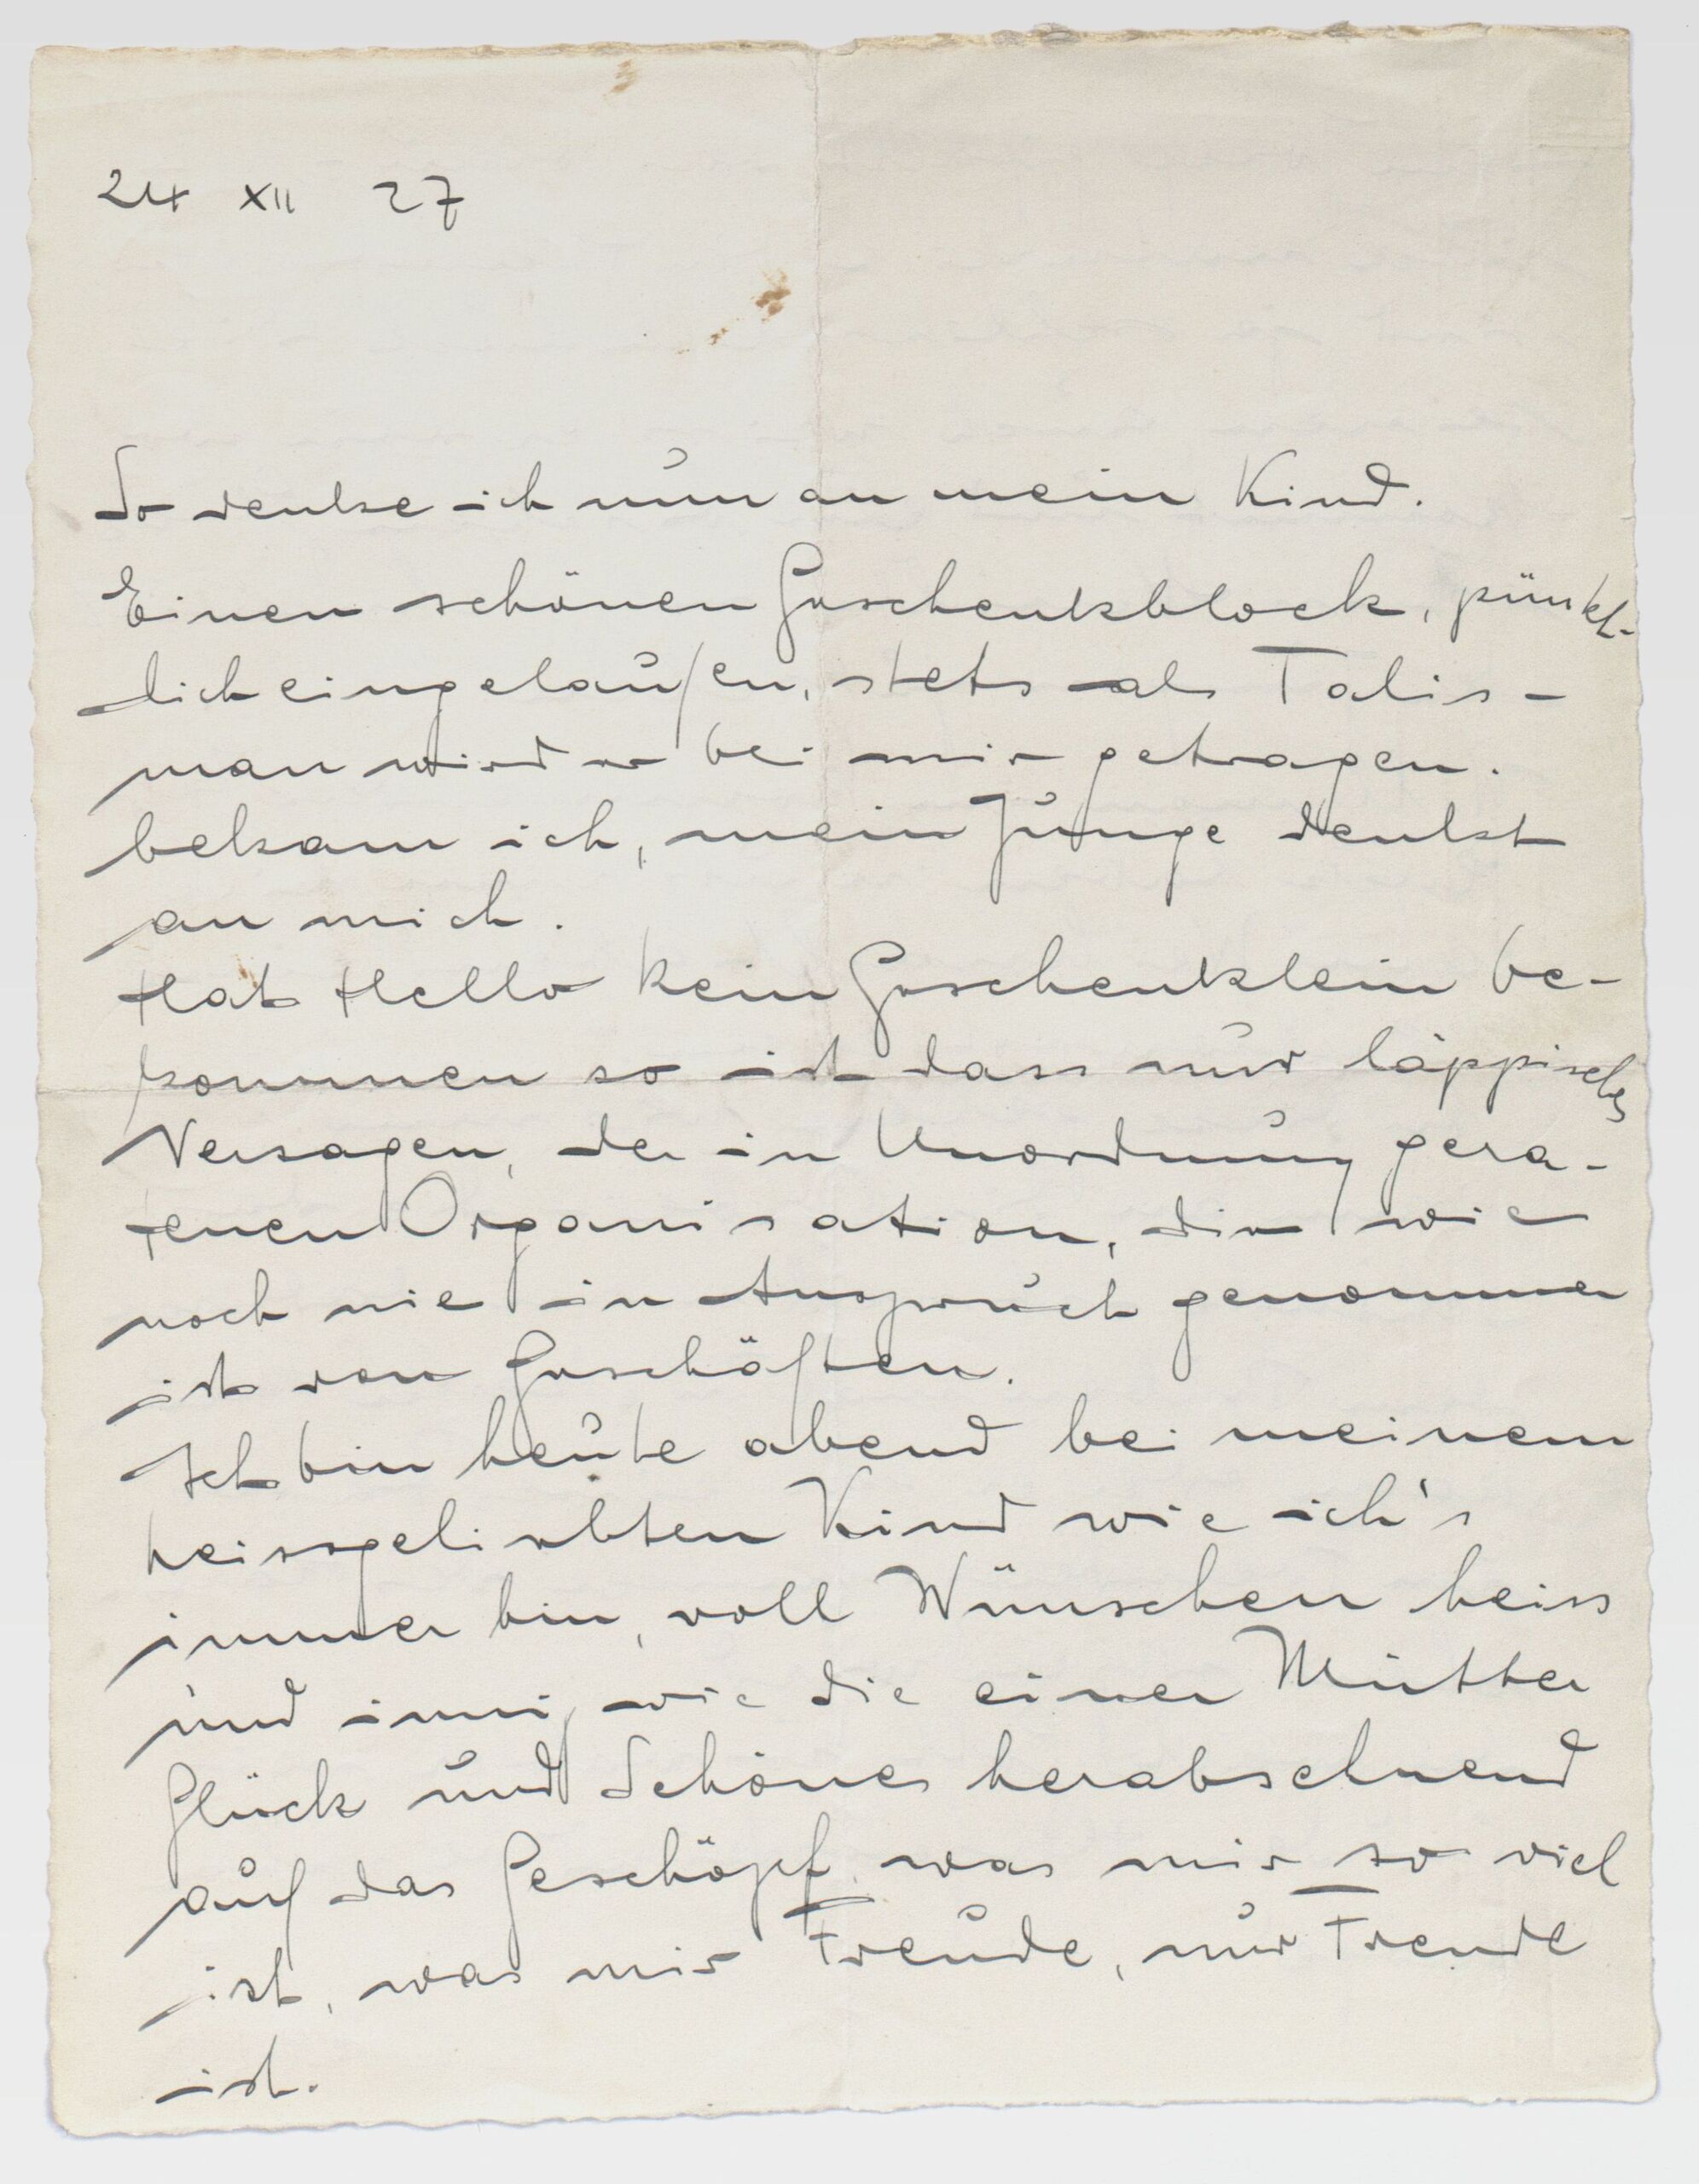 24 XII 27
So denke ich nun an mein Kind.
Einen schönen Geschenkblock, pünkt-
lich eingelaufen, stets als Talis-
man wird er bei mir getragen.
bekam ich, mein Junge denkt
an mich.
Hat Hello kein Geschenklein be-
kommen so ist dass nur läppisches
Versagen, der in Unordnung gera-
tenen Organisation, die wie
noch nie in Anspruch genommen
ist von Geschäften.
Ich bin heute abend bei meinem
heissgeliebten Kind wie ich's
immer bin, voll Wünschen heiss
und innig wie die einer Mutter
Glück und Schönes herabsehnend
auf das Geschöpf was mir so viel
ist, was mir Freude, nur Freude
ist.